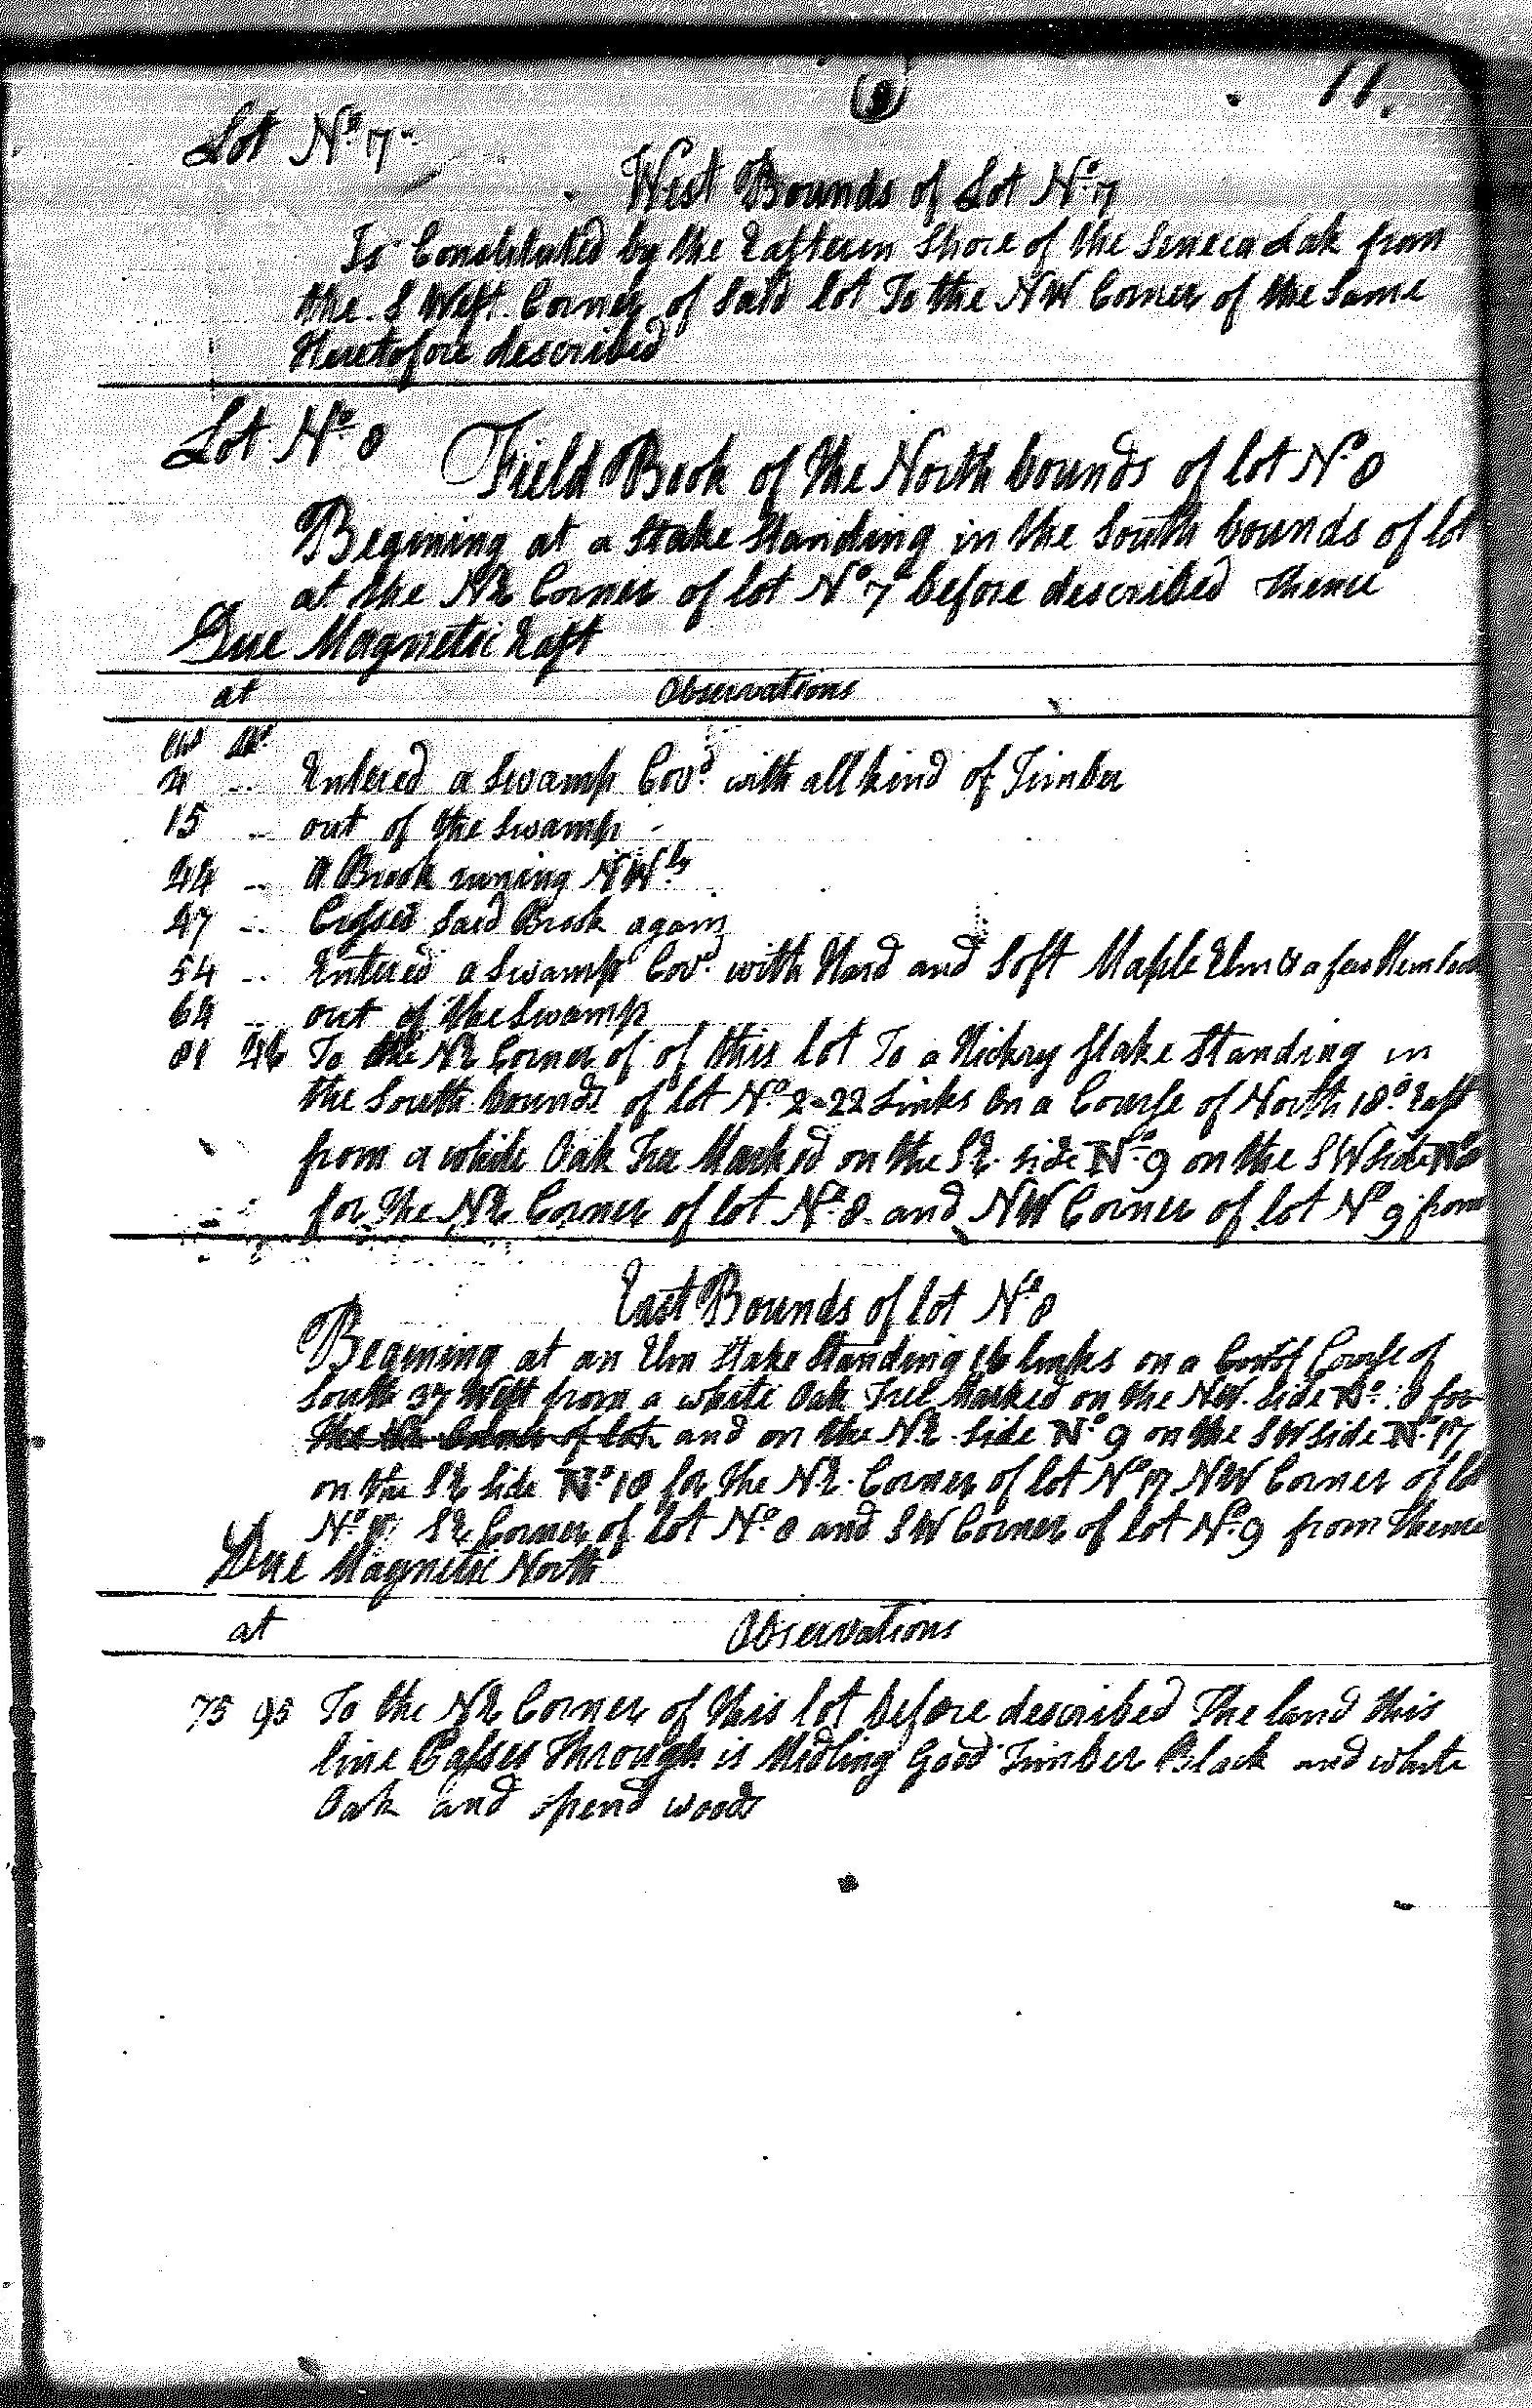 11.
Lot No. 7
West Bounds of Lot No. 7
Is Constituted by the Eastern Shore of the Seneca Lak from
the S West Corner of Said lot To the NW Corner of the Same
Heretofore described
Lot No. 8
Field Book of the North bounds of lot No. 8
Begining at a Stake Standing in the South bounds of lot
at the NE Corner of lot No. 7 before described thence
Due Magnetic East
at Observations
Entered a Swamp Covd. with all kind of Timber
15 .. out of the Swamp
44 .. A Brook runing NWly
47 .. Crossed Said Brook again
54 .. Entered a Swamp Covd. with Hard and Soft Maple Elm & a few Hemlock
64 .. out of the Swamp
81 46 To the NE Corner of of this lot To a Hickry Stake Standing in
the South bounds of lot No. 2 - 22 Links on a Course of North 18° East
from a white Oak Tree Marked on the SE side No. 9 on the SW side No. 8
for the NE Corner of lot No. 8 and NW Corner of lot No. 9 from
East Bounds of lot No. 8
Begining at an Elm Stake Standing 16 links on a Course of
South 37 West from a white Oak Tree Marked on the NW side No. 8 for
the NE Corner of lot and on the NE side No. 9 on the SW side No. 17
on the SE side No. 18 for the NE Corner of lot No. 17 NW Corner of lot
No. 18 SE Corner of lot No. 8 and SW Corner of lot No. 9 from thence
Due Magnetic North
at Observations
75 95 To the NE Corner of this lot before described The land this
line Passes Through is Midling Good Timber Black and white
Oak and open'd woods